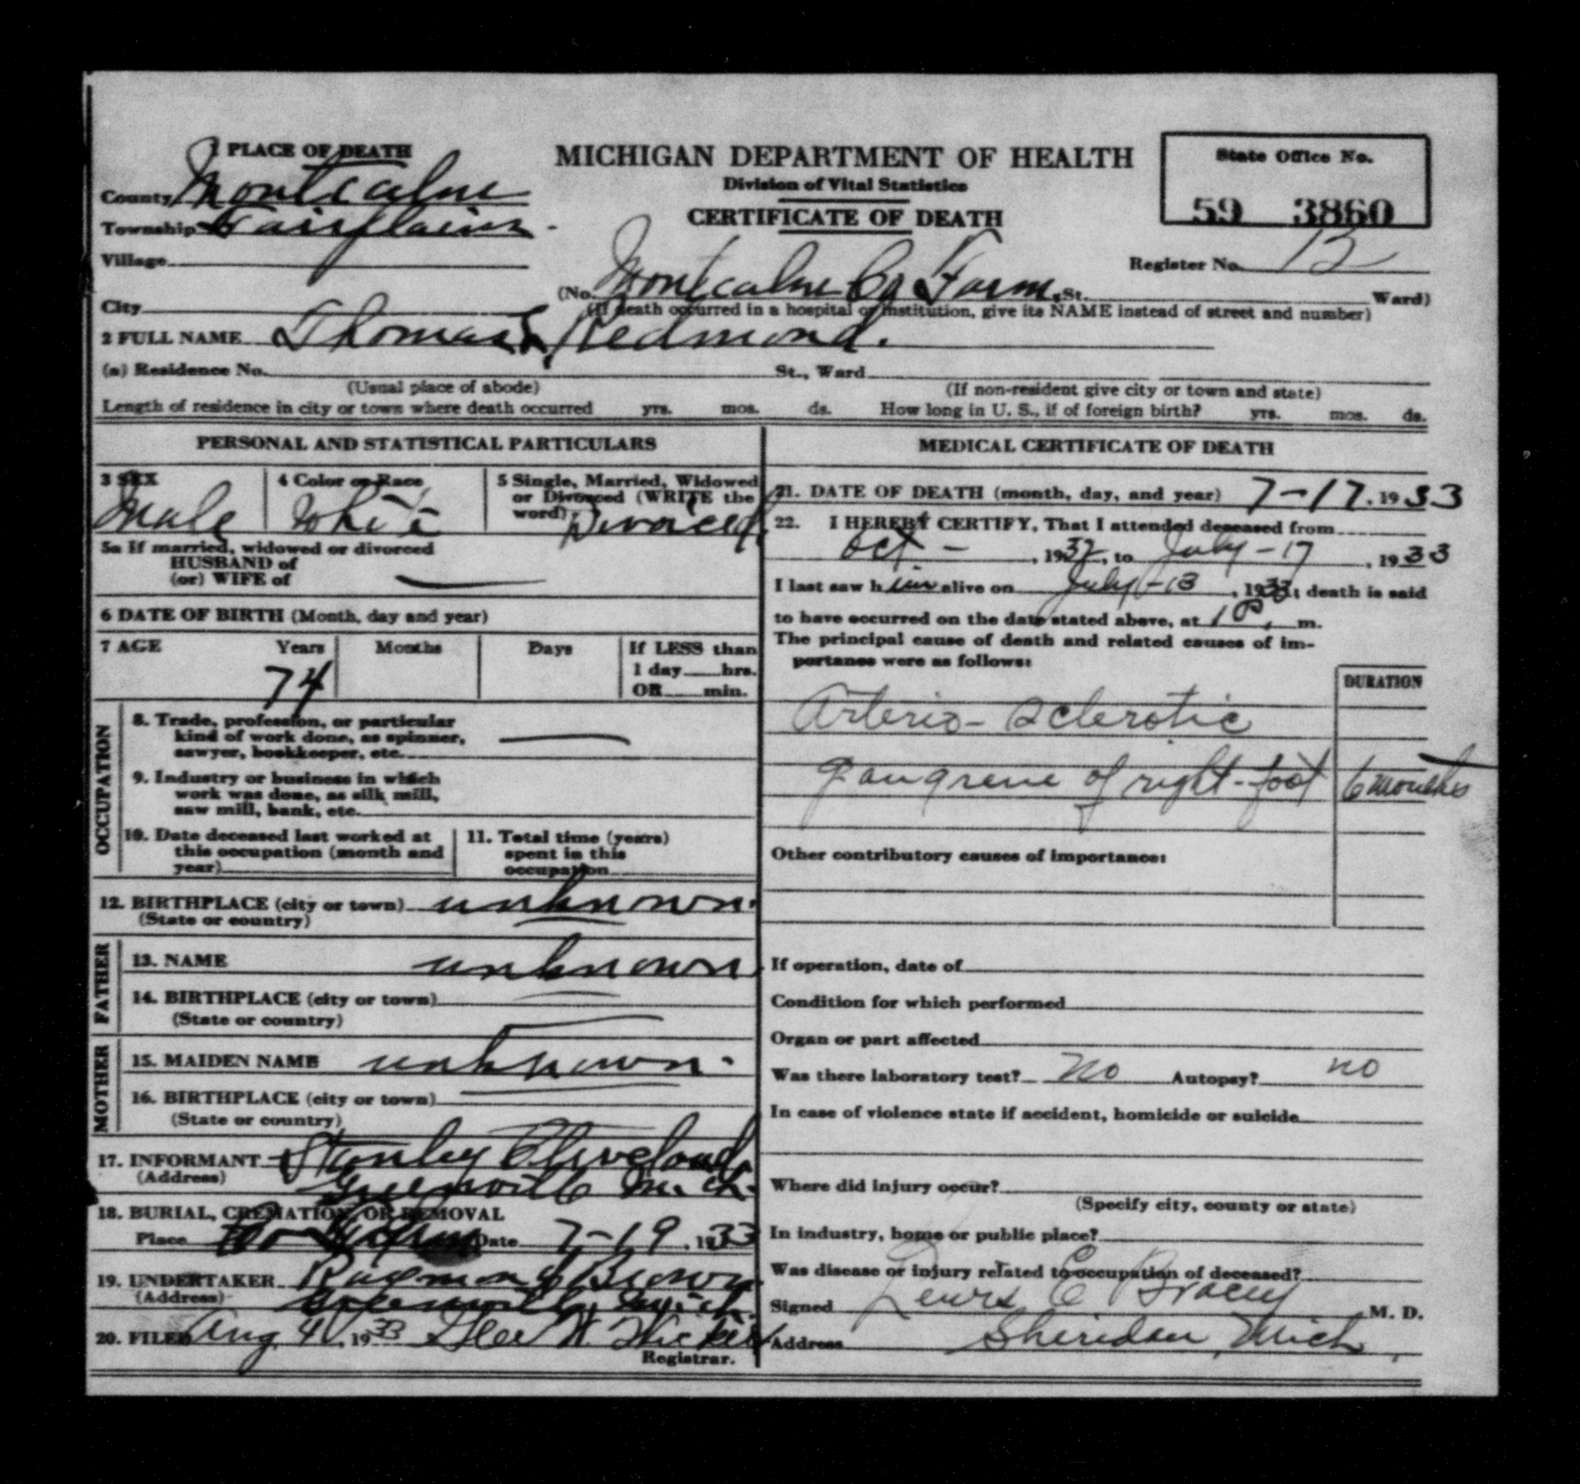 1 PLACE OF DEATH
County Montcalm
Township Fairplains
Village
City
MICHIGAN DEPARTMENT OF HEALTH
Division of Vital Statistics
CERTIFICATE OF DEATH
State Office No.
59 3860
Register No.
(No. Montcalm Co Farm, St. Ward)
(If death occurred in a hospital or institution, give its NAME instead of street and number)
2 FULL NAME Thomas Redmond.
(a) Residence No. St., Ward
(Usual place of abode) (If non-resident give city or town and state)
Length of residence in city or town where death occurred yrs. mos. ds. How long in U. S., if of foreign birth? yrs. mos. ds.
PERSONAL AND STATISTICAL PARTICULARS
3 SEX
Male
4 Color or Race
White
5 Single, Married, Widowed
or Divorced (WRITE the
word) Divorced
5a If married, widowed or divorced
HUSBAND of
(or) WIFE of
6 DATE OF BIRTH (Month, day and year)
7 AGE Years Months Days If LESS than
1 day hrs.
OR min.
74
OCCUPATION
8. Trade, profession, or particular
kind of work done, as spinner,
sawyer, bookkeeper, etc.
9. Industry or business in which
work was done, as silk mill,
saw mill, bank, etc.
10. Date deceased last worked at
this occupation (month and
year)
11. Total time (years)
spent in this
occupation
12. BIRTHPLACE (city or town) unknown.
(State or country)
FATHER
13. NAME unknown
14. BIRTHPLACE (city or town)
(State or country)
MOTHER
15. MAIDEN NAME unknown.
16. BIRTHPLACE (city or town)
(State or country)
17. INFORMANT Stanley Cleveland
(Address) Greenville Mich.
18. BURIAL, CREMATION, OR REMOVAL
Place Date 7-19, 1933
19. UNDERTAKER Raymond Brown
(Address) Greenville, Mich.
20. FILED Aug 4, 1933
Registrar.
MEDICAL CERTIFICATE OF DEATH
21. DATE OF DEATH (month, day, and year) 7-17, 1933
22. I HEREBY CERTIFY, That I attended deceased from
Oct -, 1932, to July -17, 1933
I last saw him alive on July -13, 1933; death is said
to have occurred on the date stated above, at 1 P. m.
The principal cause of death and related causes of im-
portance were as follows:
DURATION
Arterio-sclerotic
gangrene of right-foot 6 months
Other contributory causes of importance:
If operation, date of
Condition for which performed
Organ or part affected
Was there laboratory test? no Autopsy? no
In case of violence state if accident, homicide or suicide
Where did injury occur?
(Specify city, county or state)
In industry, home or public place?
Was disease or injury related to occupation of deceased?
Signed Lewis E Bracey M. D.
Address Sheridan, Mich.